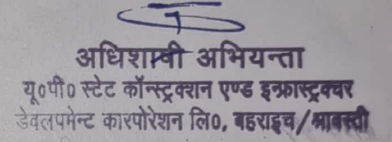 अधिशाषी अभियन्ता
यू०पी० स्टेट कॉन्स्ट्रक्शन एण्ड इन्फ्रास्ट्रक्चर
डेवलपमेन्ट कारपोरेशन लि०, बहराइच/श्रावस्ती